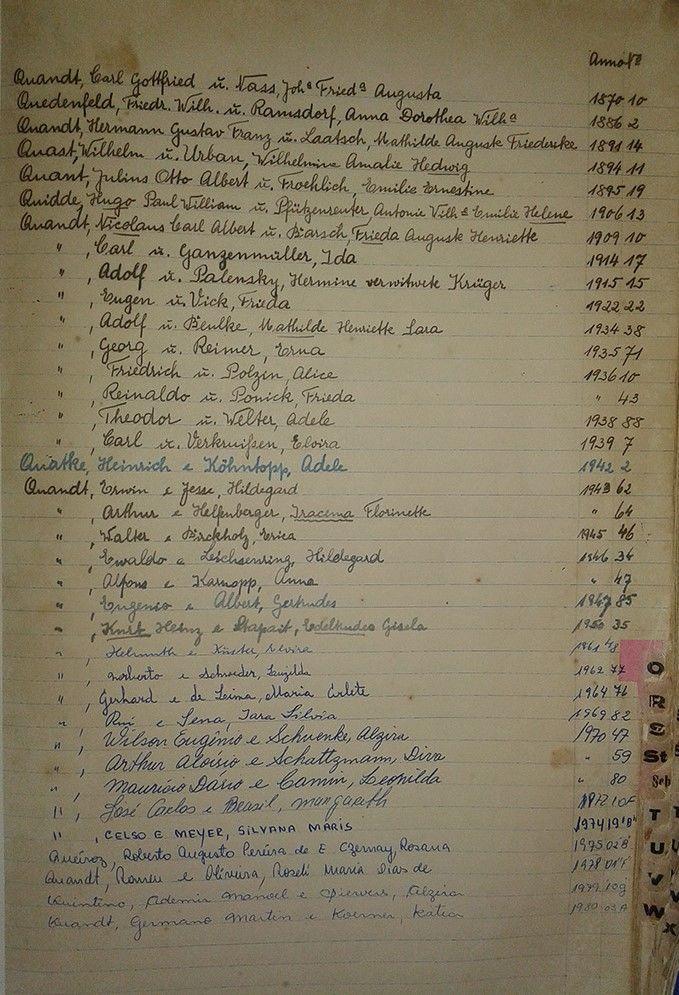 Anno No
Quandt, Carl Gottfried ü. Nass, Joha Frieda Augusta 1870 10
Quedenfeld, Friedr. Wilh. ü. Ramsdorf, Anna Dorothea Wilha 1886 2
Quandt, Hermann Gustav Franz ü. Laatsch, Mathilde Auguste Friedereke 1891 14
Quast, Wilhelm ü. Urban, Wilhelmine Amalie Hedwig 1894 11
Quant, Julius Otto Albert ü. Froehlich, Emilie Ernestine 1895 19
Quidde, Hugo Paul William ü. Pfützenreuter, Antonie Wilha Emilie Helene 1906 13
Quandt, Nicolaus Carl Albert ü. Barsch, Frieda Auguste Henriette 1909 10
" , Carl ü. Ganzenmüller, Ida 1914 17
" , Adolf ü. Palensky, Hermine verwitwete Krüger 1915 15
" , Eugen ü. Vick, Frieda 1922 22
" , Adolf ü. Beulke, Mathilde Henriette Sara 1934 38
" , Georg ü. Reimer, Erna 1935 71
" , Friedrich ü. Polzin, Alice 1936 10
" , Reinaldo ü. Ponick, Frieda " 43
" , Theodor ü. Welter, Adele 1938 88
" , Carl ü. Verkruißen, Elvira 1939 7
Quatke, Heinrich e Köhntopp, Adele 1942 2
Quandt, Erwin e Jesse, Hildegard 1943 62
" , Arthur e Helfenberger, Iracema Florinette " 64
" , Walter e Birckholz, Erica 1945 46
" , Ewaldo e Leichsenring, Hildegard 1946 34
" , Alfons e Karnopp, Anna " 47
" , Eugenio e Albert, Gertrudes 1947 85
" , Kurt Heinz e Stapait, Edeltrudes Gisela 1950 35
" , Helmuth e Küster, Elvira 1961 48
" , Norberto e Schneider, 1962 77
" , Gerhard e de Lima, Maria Arlete 1964 76
" , Rui e Sena, Iara Silvia 1969 82
" , Wilson Eugênio e Schwenke, Alzira 1970 47
" , Arthur Aloísio e Schattzmann, Diva " 59
" , Maurício Dário e Camin, Leopilda " 80
" , José Carlos e Brasil, Margareth 1972
" , CELSO E MEYER, SILVANA MARIS 1974
Queiroz, Roberto Augusto Pereira de E Czernay, Rosana 1975
Quandt, Romeu e Oliveira, Roseli Maria Dias de 1978
Quintino, Ademir Manoel e Alzira 1979
Quandt, Germano Martin e Koerner, Katia 1980
O
R
S
St
Sch
T
U
V
W
X